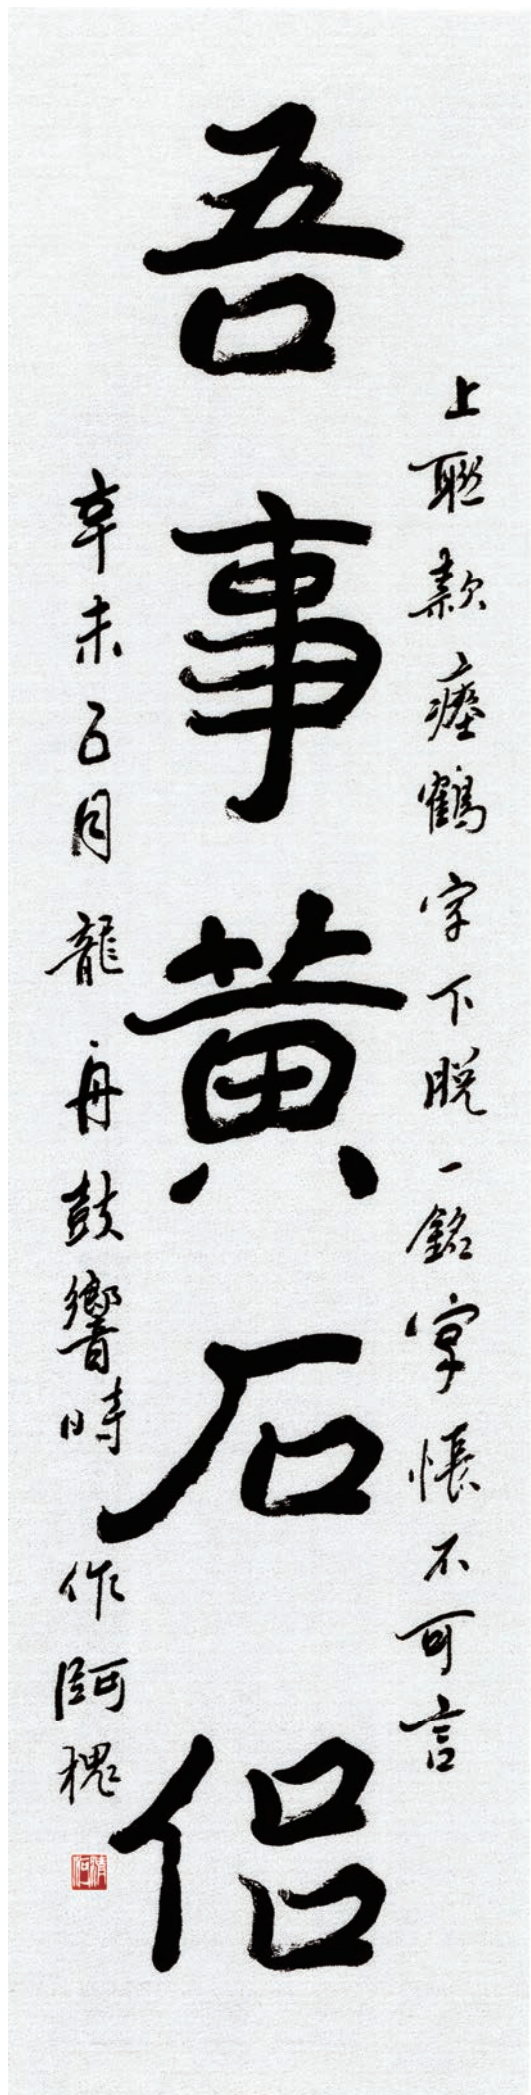 上聯款瘞鶴字下脱一銘字悵不可言
吾事黄石侣
辛未五月龍舟鼓響時 作